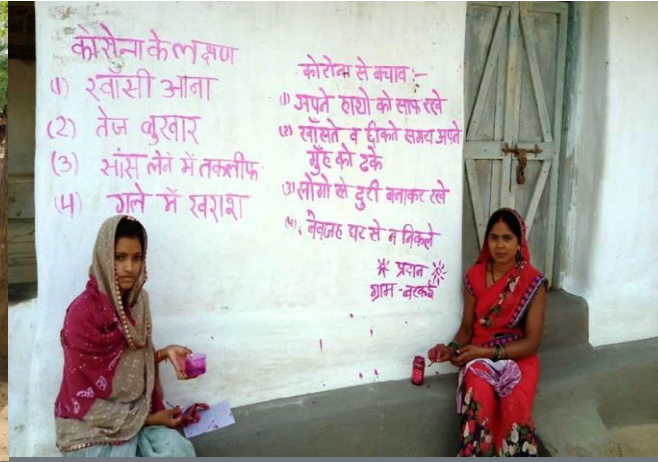 कोरोना के लक्षण
(1) खाँसी आना
(2) तेज बुखार
(3) सांस लेने में तकलीफ
(4) गले में खराश
कोरोना से बचाव :-
(1) अपने हाथो को साफ रखे
(2) खाँसते व छीकते समय अपने
मुँह को ढके
(3) लोगो से दुरी बनाकर रखे
(4) बेवजह घर से न निकले
प्रदान
ग्राम - बरकई